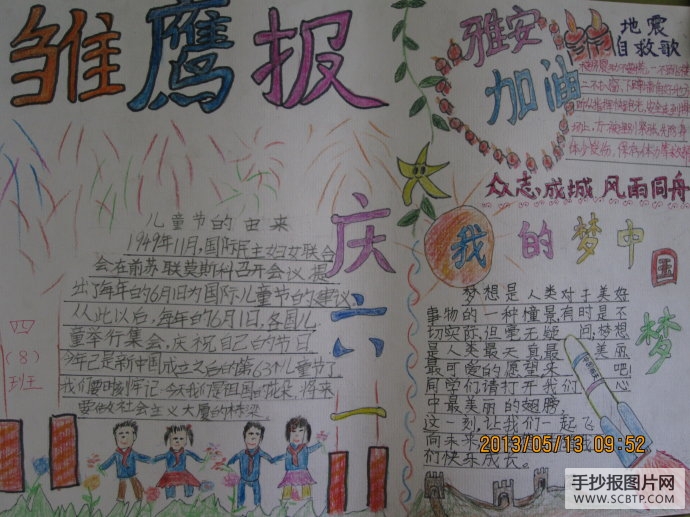 雏鹰报
四
(8)
班
儿童节的由来
1949年11月,国际民主妇女联合
会在前苏联莫斯科召开会议,提
出了每年的6月1日为国际儿童节的建议
从此以后,每年的6月1日,各国儿
童举行集会,庆祝自己的节日
今年已是新中国成立之后的第63个儿童节了
我们要时刻牢记:今天我们是祖国的花朵,将来
要做社会主义大厦的栋梁
庆
六
一
雅安
加油
地震
自救歌
众志成城 风雨同舟
我的梦中国梦
梦想是人类对于美好
事物的一种憧景,有时是不
切实际,但毫无疑问,梦想
是人类最天真最美丽
最可爱的愿望来吧!
同学们请打开我们心
中最美丽的翅膀
这一刻,让我们一起飞
向未来
们快乐成长。
2013/05/13 09:52
手抄报图片网
WWW.SCBTP.COM